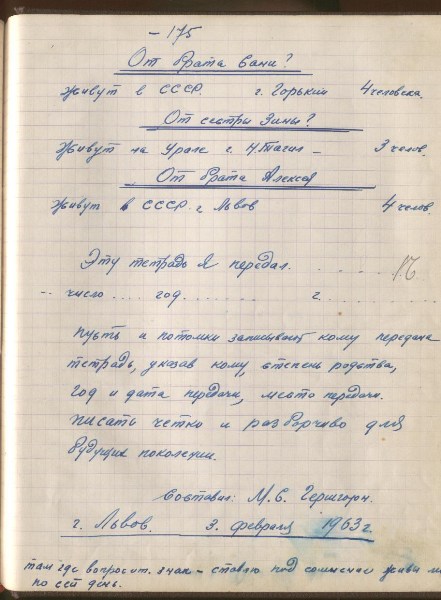 - 175
От брата Вани?
живут в СССР. г. Горький 4 человека.
От сестры Зины?
живут на Урале г. Н.Тагил - 3 челов.
От брата Алексея
живут в СССР. г. Львов 4 челов.
Эту тетрадь я передал. . . . . . . .
число .... год........ г. ........
пусть и потомки записывают кому передана
тетрадь, указав кому, степень родства,
год и дата передачи, место передачи.
писать четко и разборчиво для
будущих поколении.
Составил: М.С. Гершгорн.
г. Львов. 3. февраля 1963 г.
там где вопросит. знак - ставлю под сомнением живы
по сей день.